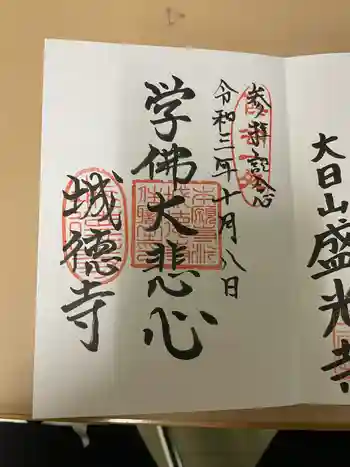 参拝記念
令和三年十月八日
学佛大悲心
城德寺
大日山
盛光寺